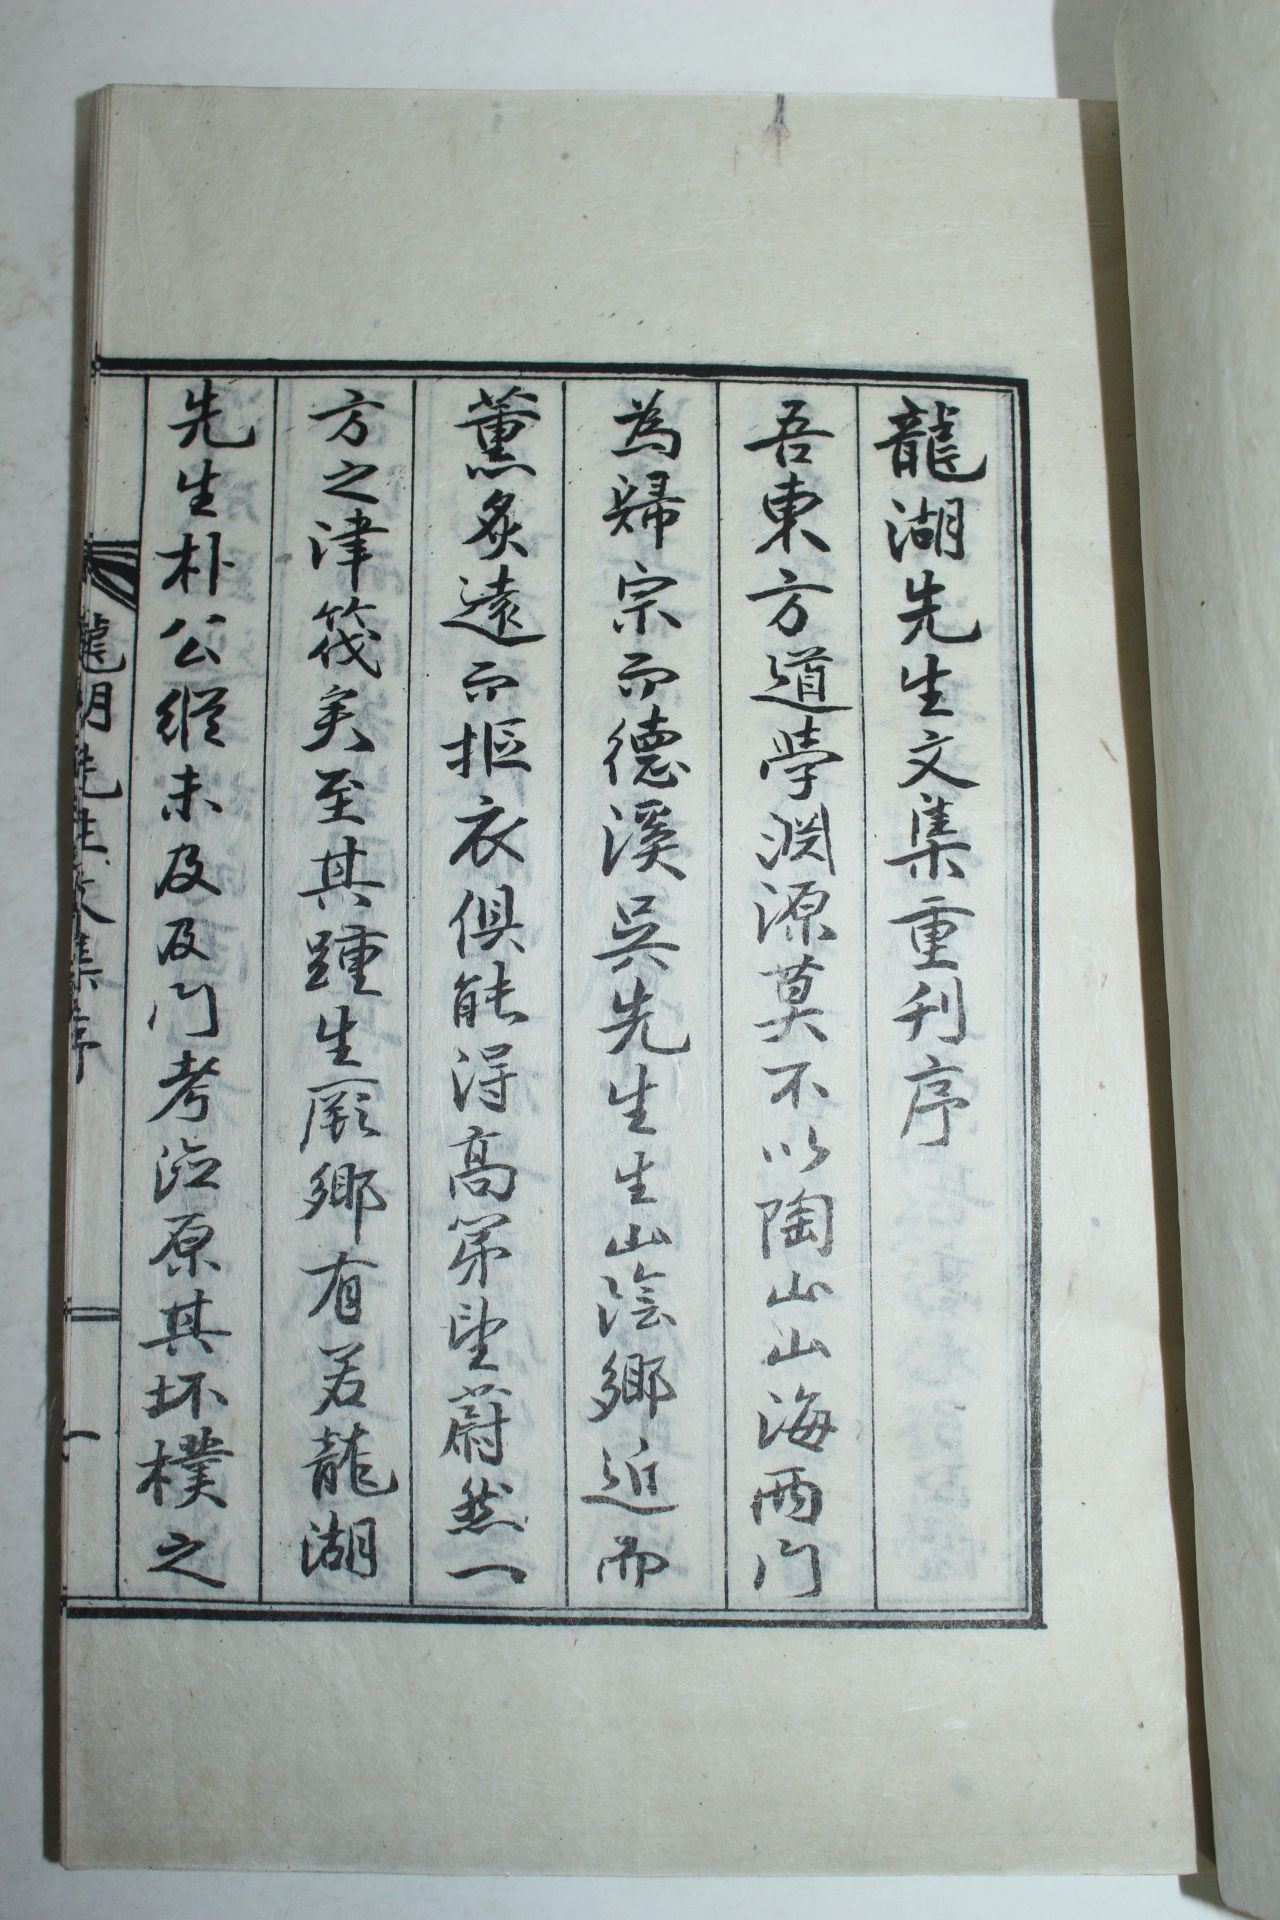 龍湖先生文集重刊序
吾東方道學淵源莫不以陶山山海兩門
為歸宗而德溪吳先生生山陰鄉近而
薰炙遠而摳衣俱能得高第望蔚然一
方之津筏矣至其踵生厥鄉有若龍湖
先生朴公縱未及及門考論原其坏樸之
龍湖先生文集序
一